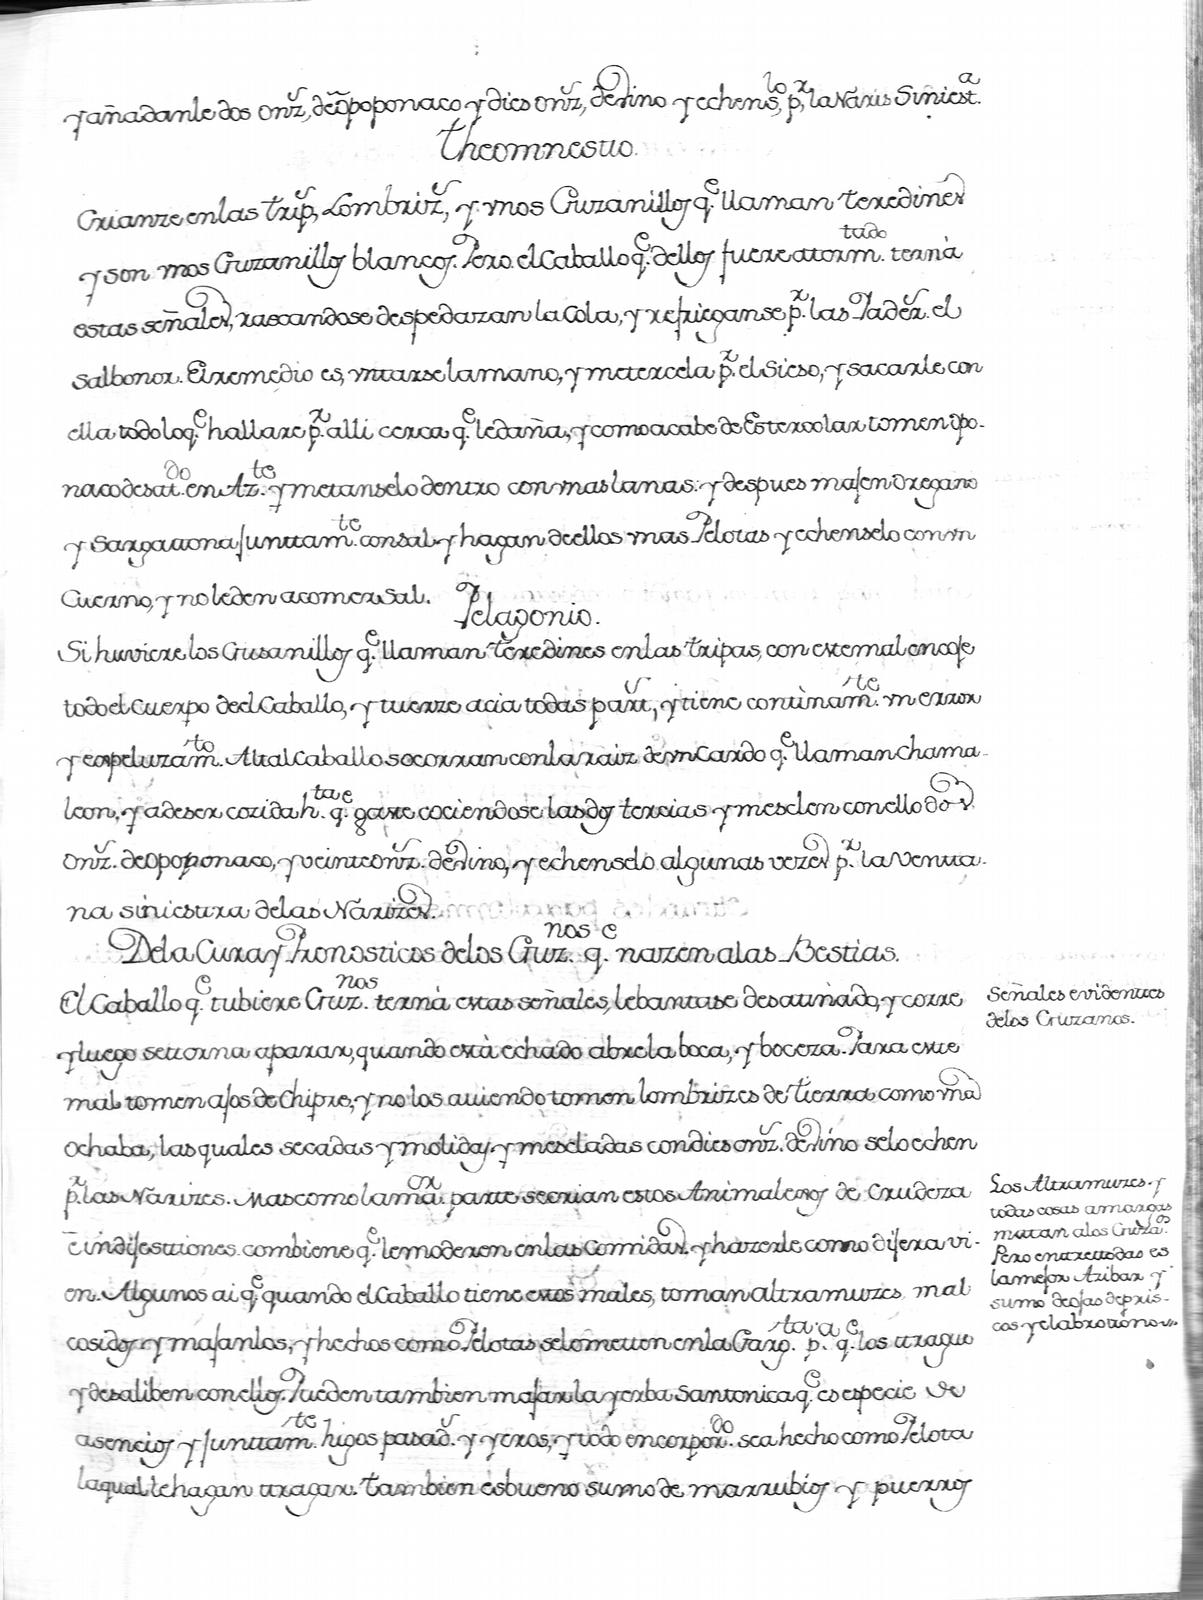 y añadanle dos onz.ˢ, de opoponaco y dies onz.ˢ, de vino y echenˢᵉˡᵒ, p.ʳ, la Naris Siniest.ᵃ
Theomnesto.
Crianze en las trip.ˢ, Lombriz.ˢ, y vnos Guzanillos q.ᵉ llaman teredines
y son vnos Guzanillos blancos. Pero el Caballo q.ᵉ dellos fuere atorm.ᵗᵃᵈᵒ ternà
estas señales, rascandose despedazan la Cola, y refrieganse p.ʳ las Paded.ˢ el
salbonor. El remedio es, vntarse la mano, y metercela p.ʳ el Sieso, y sacarle con
ella todo lo q.ᵉ hallare p.ʳ alli cerca q.ᵉ le daña, y como acabe de Estercolar tomen opo-
naco desat.ᵈᵒ en Az.ᵗᵉ y metanselo dentro con mas lanas: y despues majen Oregano
y Sargatona juntam.ᵗᵉ con sal y hagan deellos vnas Pelotas y echenselo con vn
Cuerno, y no leden a comer Sal.
Pelagonio.
Si huviere los Gusanillos q.ᵉ llaman teredines en las tripas, con este mal encoje
todo el Cuerpo deel Caballo, y tuerze acia todas part.ˢ, y tiene continam.ᵗᵉ vn error
y espeluzam.ᵗᵒ. Al tal Caballo socorran con la raiz de vn Cardo q.ᵉ llaman chama-
leon, y a de ser cozida h.ᵗᵃ q.ᵉ gaste cociendose las dos tercias y mesclen con ello dos
Onz.ˢ de opoponaco, y veinte onz.ˢ de vino, y echenselo algunas vezes p.ʳ la venta-
na siniestra de las Narizes.
De la Cura y Pronosticos de los Guz.ⁿᵒˢ q.ᵉ nazen a las Bestias.
El Caballo q.ᵉ tubiere Guz.ⁿᵒˢ ternà estas señales, lebantase desatinado, y corre
y luego se torna a parar, quando està echado abre la boca, y boceza. Para este
mal tomen ajos de Chipre, y no los auiendo tomen lombrizes de tierra como vna
ochaba, las quales secadas y molidas y mescladas con dies onz.ˢ de vino selo echen
p.ʳ las Narizes. Mas como la ma.ᵒʳ parte se crian estos Animalexos de Crudeza
è indijestiones combiene q.ᵉ le moderen en las Comidas, y hazerle como dijera vi-
en. Algunos ai q.ᵉ quando el Caballo tiene estos males, toman altramuzes mal
cosidos y majanlos, y hechos como Pelotas selo meten en la Garg.ᵗᵃ p.ᵃ q.ᵉ los trague
y desaliben con ellos. Pueden tambien majar la yerba Santonica q.ᵉ es especie de
asencios y juntam.ᵗᵉ higos pasad.ˢ y yeros, y todo encorpor.ᵈᵒ sea hecho como Pelota
la qual le hagan tragar. tambien es bueno sumo de marrubios y puerros
Señales evidentes
delos Guzanos.
Los Altramuzes, y
todas cosas amargas
matan a los Guza.ⁿᵒˢ
Pero entre todas es
la mejor Azibar y
sumo de ojas de pris-
cos y